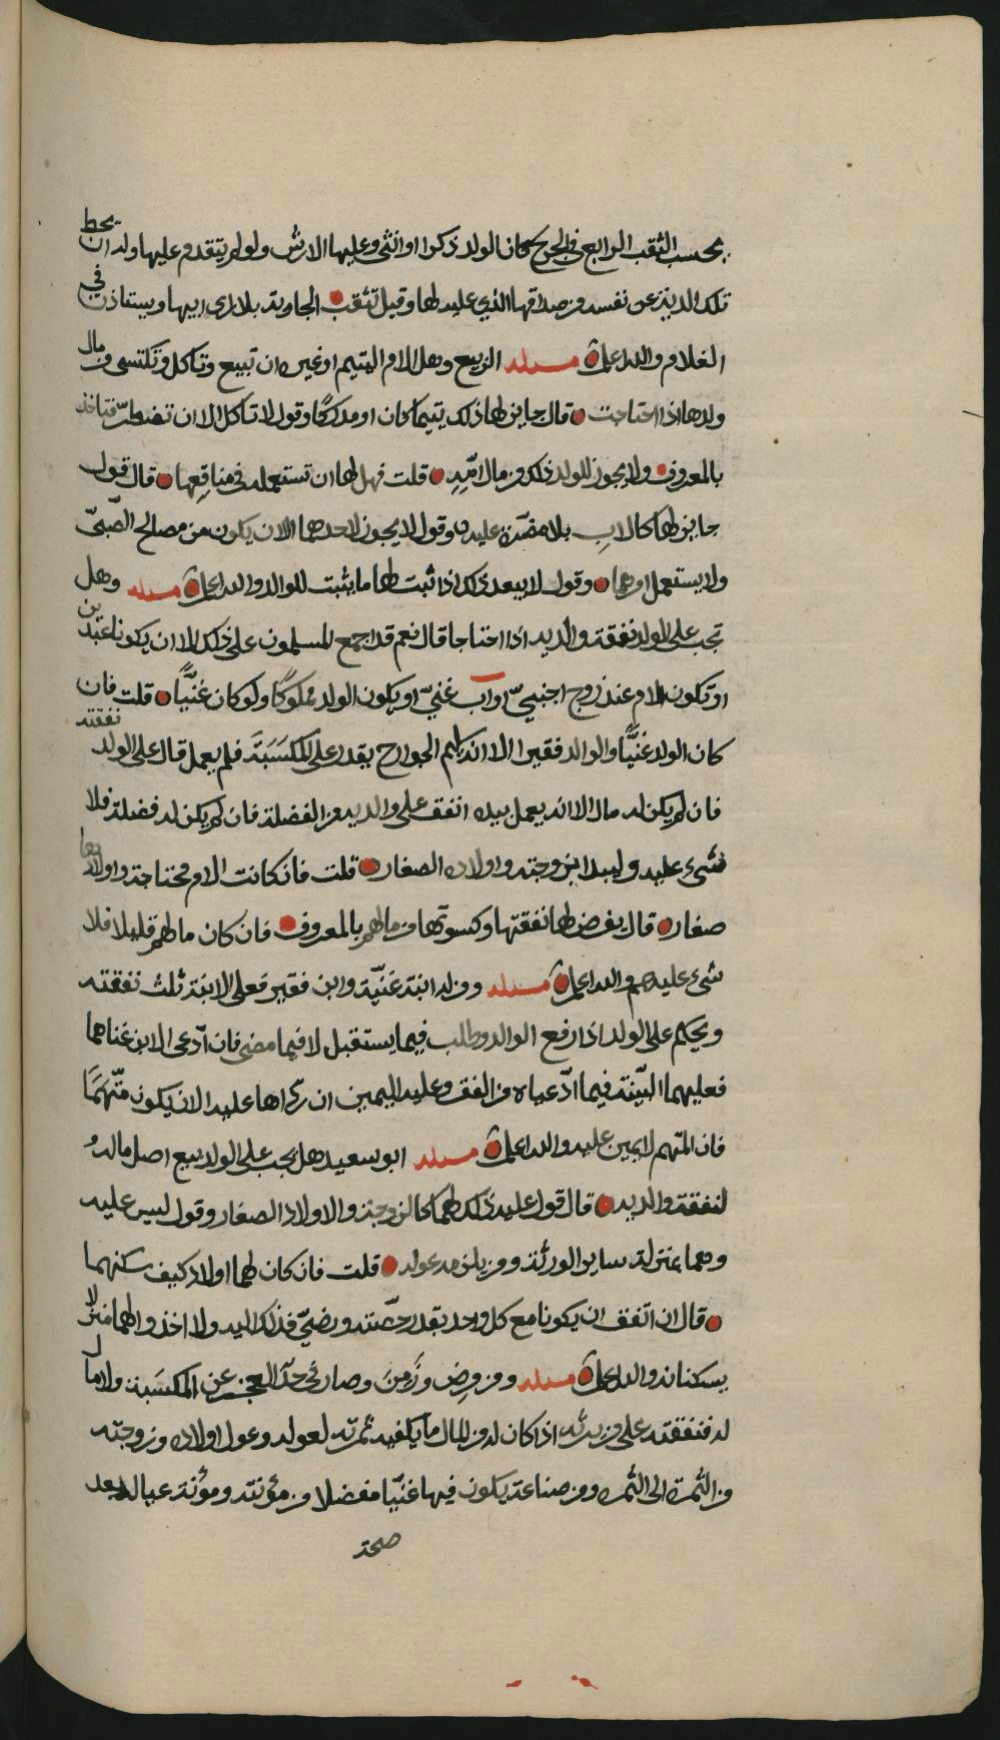 بحسب الثقب الرابع في الجرح كان الولد ذكرا او انثى وعليها الارش ولو لم يتقدم عليها وله ان يحط
تلك الدية عن نفسه من صداقها الذي عليه لها وقيل تثقب الجارية بلا رأي ابيها ويستاذن في
الغلام والله اعلم مسئلة الربيع وهل لام اليتيم او غيره ان تبيع وتاكل وتكتسي من مال
ولدها اذا احتاجت قال جايز لها ذلك يتيما كان او مدركا وقول لا تاكل الا ان تضطر فتاخذ
بالمعروف ولا يجوز للولد ذلك من مال امه قلت فهل لها ان تستعمله في منافعها قال قول
جايز لها كالاب بلا مضرة عليه وقول لا يجوز لاحدهما الا ان يكون من مصالح الصبي
ولا يستعمل اوهما وقول لا يبعد ذلك اذا ثبت لها ما يثبت للوالد والله اعلم مسئلة وهل
تجب على الولد نفقة والديه اذا احتاجا قال نعم قد اجمع المسلمون على ذلك الا ان يكونا عبدين
او تكون الام عند زوج اجنبيّ او اب غنيّ او يكون الولد مملوكًا ولو كان غنيًّا قلت فان
كان الولد غنيًّا والوالد فقيرا الا انه سليم الجوارح يقدر على المكسبة فلم يعمل قال على الولد نفقته
فان لم يكن له مال الا انه يعمل بيده انفق على والديه من الفضلة فان لم يكن له فضلة فلا
شيء عليه وليبدا بزوجته واولاده الصغار قلت فان كانت الام محتاجة واولادها
صغار قال يفرض لها نفقتها وكسوتها من مالهم بالمعروف فان كان مالهم قليلا فلا
شيء عليهم والله اعلم مسئلة ومن له ابنة غنيّة وابن فقير فعلى الابنة ثلث نفقته
ويحكم على الولد اذا رفع الوالد وطلب فيما يستقبل لا فيما مضى فان ادّعى الابن غناهما
فعليهما البيّنة فيما ادّعياه من الفقر وعليه اليمين ان ردّاها عليه الا ان يكون متّهمًا
فان المتهم لا يمين عليه والله اعلم مسئلة ابو سعيد هل يجب على الولد بيع اصل ماله
لنفقة والديه قال قول عليه ذلك لهما كالزوجة والاولاد الصغار وقول ليس عليه
وهما بمنزلة ساير الورثة ومن يلزمه عوله قلت فان كان لهما اولاد كيف سكنهما
قال ان اتفق ان يكونا مع كل واحد بقدر حصّته ورضي فذلك اليه والا اخذوا لهما منزلا
يسكنانه والله اعلم مسئلة ومن مرض وزمن وصار في حدّ العجز عن المكسبة ولا مال
له فنفقته على من يرثه اذا كان له من المال ما يكفيه ثمرته لعوله وعول اولاده وزوجته
من الثمرة الى الثمرة ومن صناعة يكون فيها غنيّا مفضلا من مؤنته ومؤنة عياله بعد
صحة